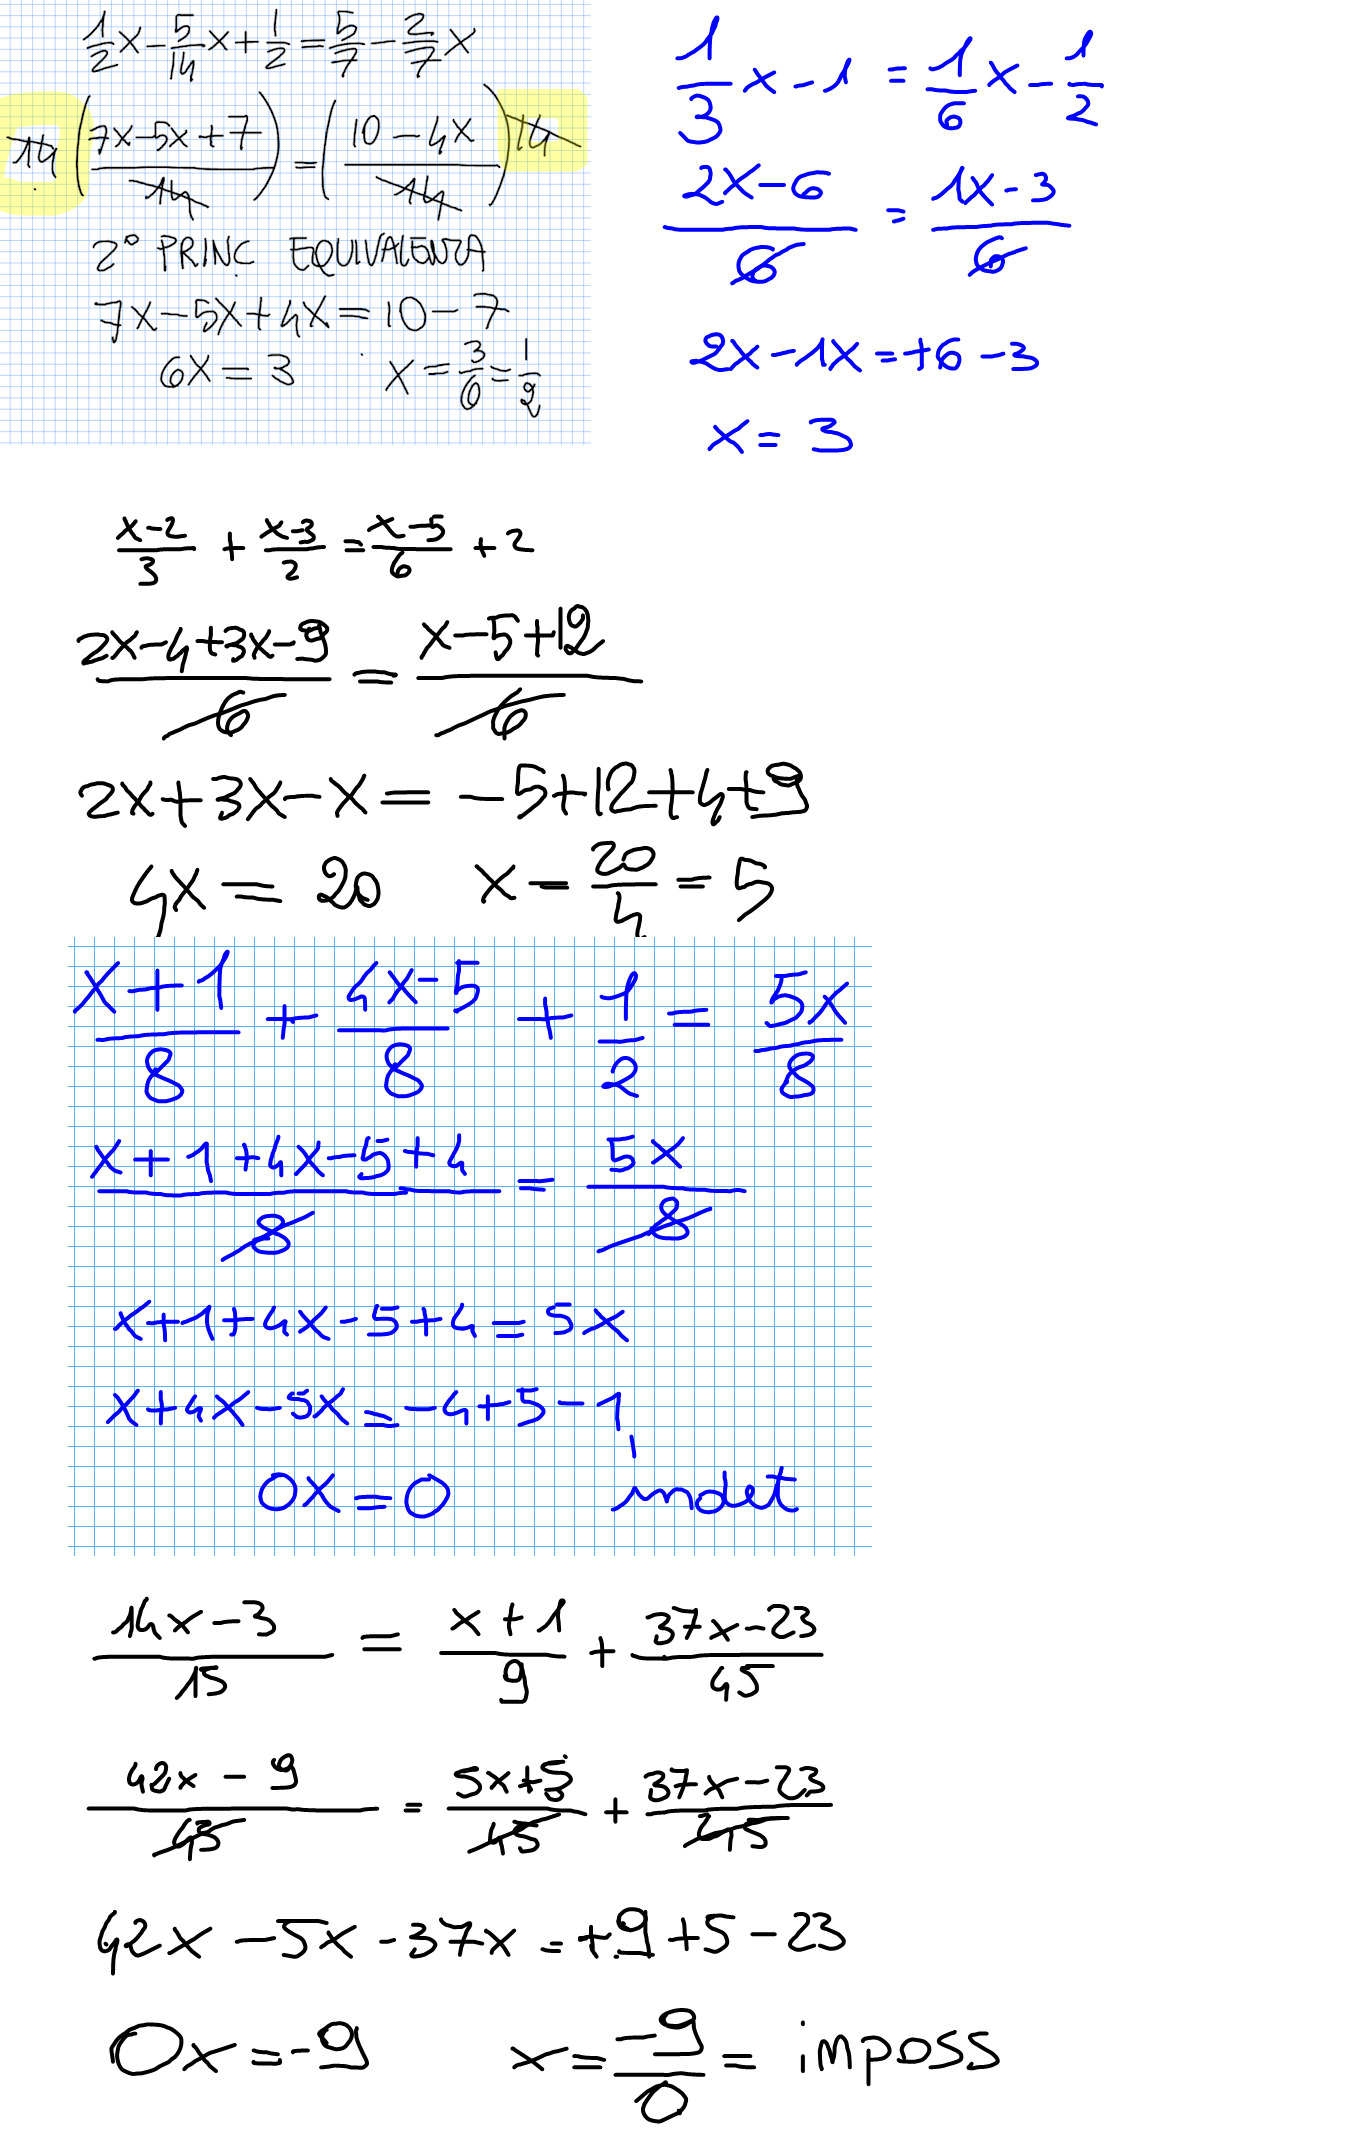 1/2 x - 5/14 x + 1/2 = 5/7 - 2/7 x
14 ( (7x-5x+7)/14 ) = ( (10-4x)/14 ) 14
2° PRINC. EQUIVALENZA
7x-5x+4x = 10-7
6x = 3 x = 3/6 = 1/2
1/3 x - 1 = 1/6 x - 1/2
(2x-6)/6 = (1x-3)/6
2x-1x = +6-3
x = 3
(x-2)/3 + (x-3)/2 = (x-5)/6 + 2
(2x-4+3x-9)/6 = (x-5+12)/6
2x+3x-x = -5+12+4+9
4x = 20 x = 20/4 = 5
(x+1)/8 + (4x-5)/8 + 1/2 = 5x/8
(x+1+4x-5+4)/8 = 5x/8
x+1+4x-5+4 = 5x
x+4x-5x = -4+5-1
0x = 0 indet
(14x-3)/15 = (x+1)/9 + (37x-23)/45
(42x-9)/45 = (5x+5)/45 + (37x-23)/45
42x-5x-37x = +9+5-23
0x = -9 x = -9/0 = imposs